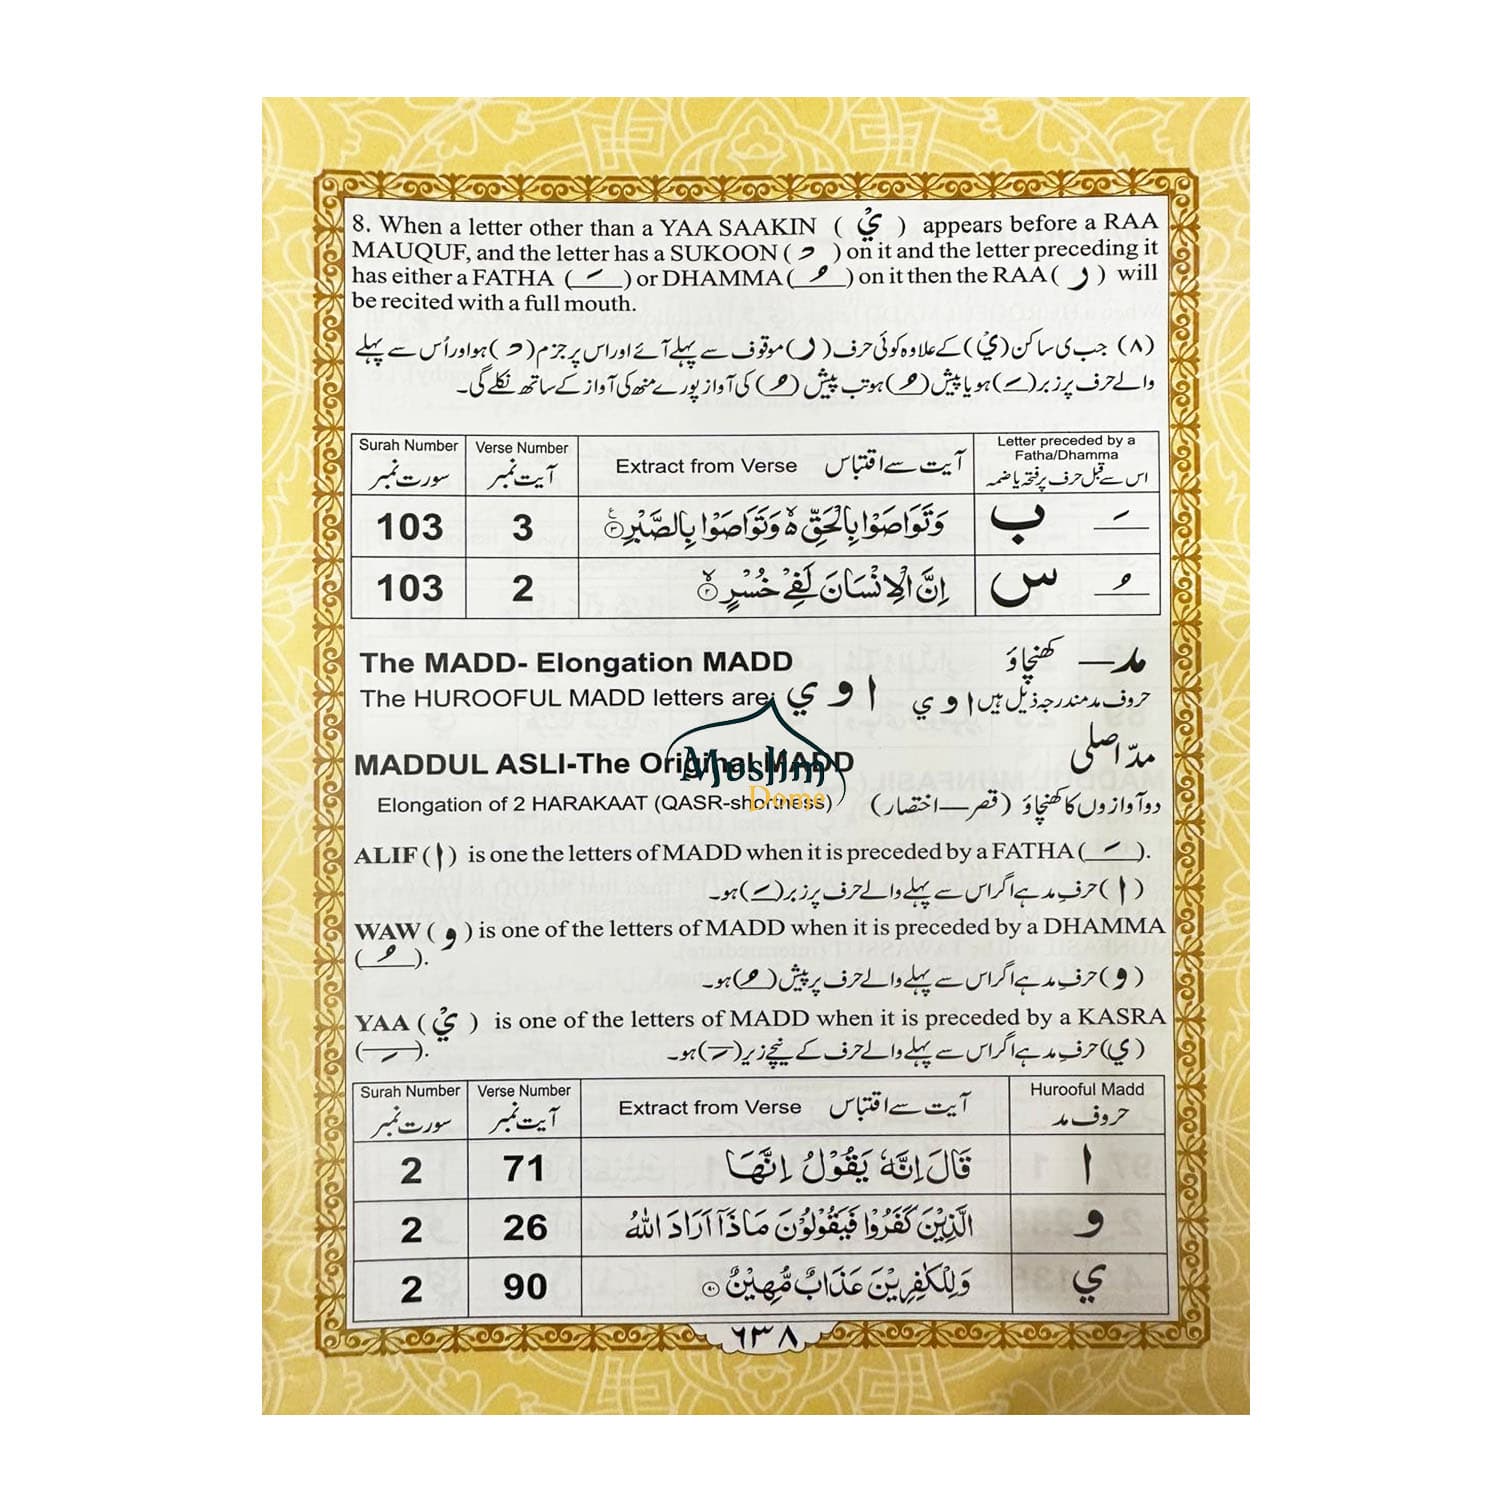 8. When a letter other than a YAA SAAKIN ( يْ ) appears before a RAA
MAUQUF, and the letter has a SUKOON ( ْ ) on it and the letter preceding it
has either a FATHA ( َ ) or DHAMMA ( ُ ) on it then the RAA ( ر ) will
be recited with a full mouth.
(۸) جب ی ساکن (يْ) کے علاوہ کوئی حرف (ر) موقوف سے پہلے آئے اور اس پر جزم ( ْ ) ہو اور اُس سے پہلے
والے حرف پر زبر ( َ ) ہو یا پیش ( ُ ) ہو تب پیش ( ُ ) کی آواز پورے منھ کی آواز کے ساتھ نکلے گی۔
Surah Number سورت نمبر Verse Number آیت نمبر Extract from Verse آیت سے اقتباس Letter preceded by a Fatha/Dhamma اس سے قبل حرف پر فتحہ یا ضمہ
103 3 وَتَوَاصَوْا بِالْحَقِّ ۙ وَتَوَاصَوْا بِالصَّبْرِ ۝۳ ب َ
103 2 اِنَّ الْاِنْسَانَ لَفِيْ خُسْرٍ ۝۲ س ُ
The MADD- Elongation MADD مد — کھنچاؤ
The HUROOFUL MADD letters are: ا و ي حروف مد مندرجہ ذیل ہیں ا و ي
MADDUL ASLI-The Original MADD مدّ اصلی
Muslim
Dome
Elongation of 2 HARAKAAT (QASR-shortness) دو آوازوں کا کھنچاؤ (قصر — اختصار)
ALIF ( ا ) is one the letters of MADD when it is preceded by a FATHA ( َ ).
( ا ) حرفِ مد ہے اگر اس سے پہلے والے حرف پر زبر ( َ ) ہو۔
WAW ( و ) is one of the letters of MADD when it is preceded by a DHAMMA
( ُ ).
( و ) حرفِ مد ہے اگر اس سے پہلے والے حرف پر پیش ( ُ ) ہو۔
YAA ( يْ ) is one of the letters of MADD when it is preceded by a KASRA
( ِ ).
(ي) حرفِ مد ہے اگر اس سے پہلے والے حرف کے نیچے زیر ( ِ ) ہو۔
Surah Number سورت نمبر Verse Number آیت نمبر Extract from Verse آیت سے اقتباس Hurooful Madd حروف مد
2 71 قَالَ اِنَّهٗ يَقُوْلُ اِنَّهَا ا
2 26 الَّذِيْنَ كَفَرُوْا فَيَقُوْلُوْنَ مَاذَآ اَرَادَ اللّٰهُ و
2 90 وَلِلْكٰفِرِيْنَ عَذَابٌ مُّهِيْنٌ ۝۹۰ ي
۶۳۸